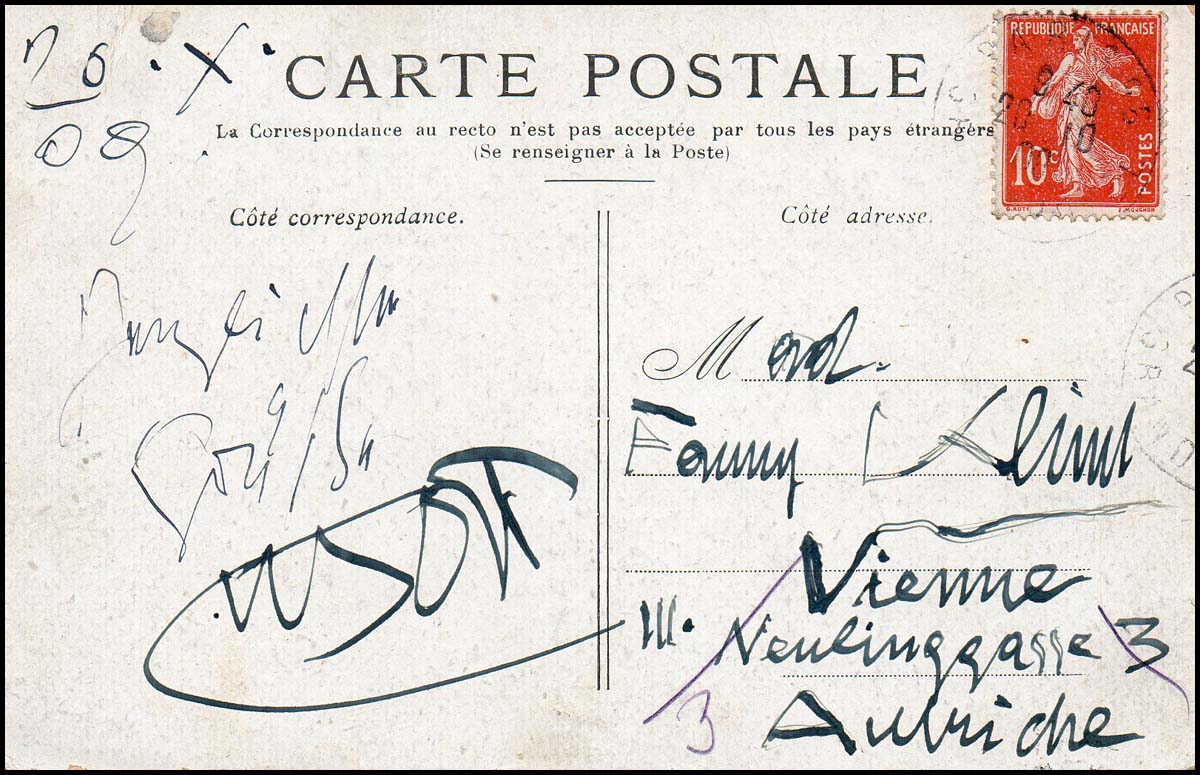 20. X.
09.
CARTE POSTALE
La Correspondance au recto n'est pas acceptée par tous les pays étrangers
(Se renseigner à la Poste)
RÉPUBLIQUE FRANÇAISE
10c
POSTES
O. ROTY
J. MOUCHON
Côté correspondance.
Côté adresse.
Mad.
Fanny Klimt
Vienne
III. Neulinggasse 3
3
Autriche